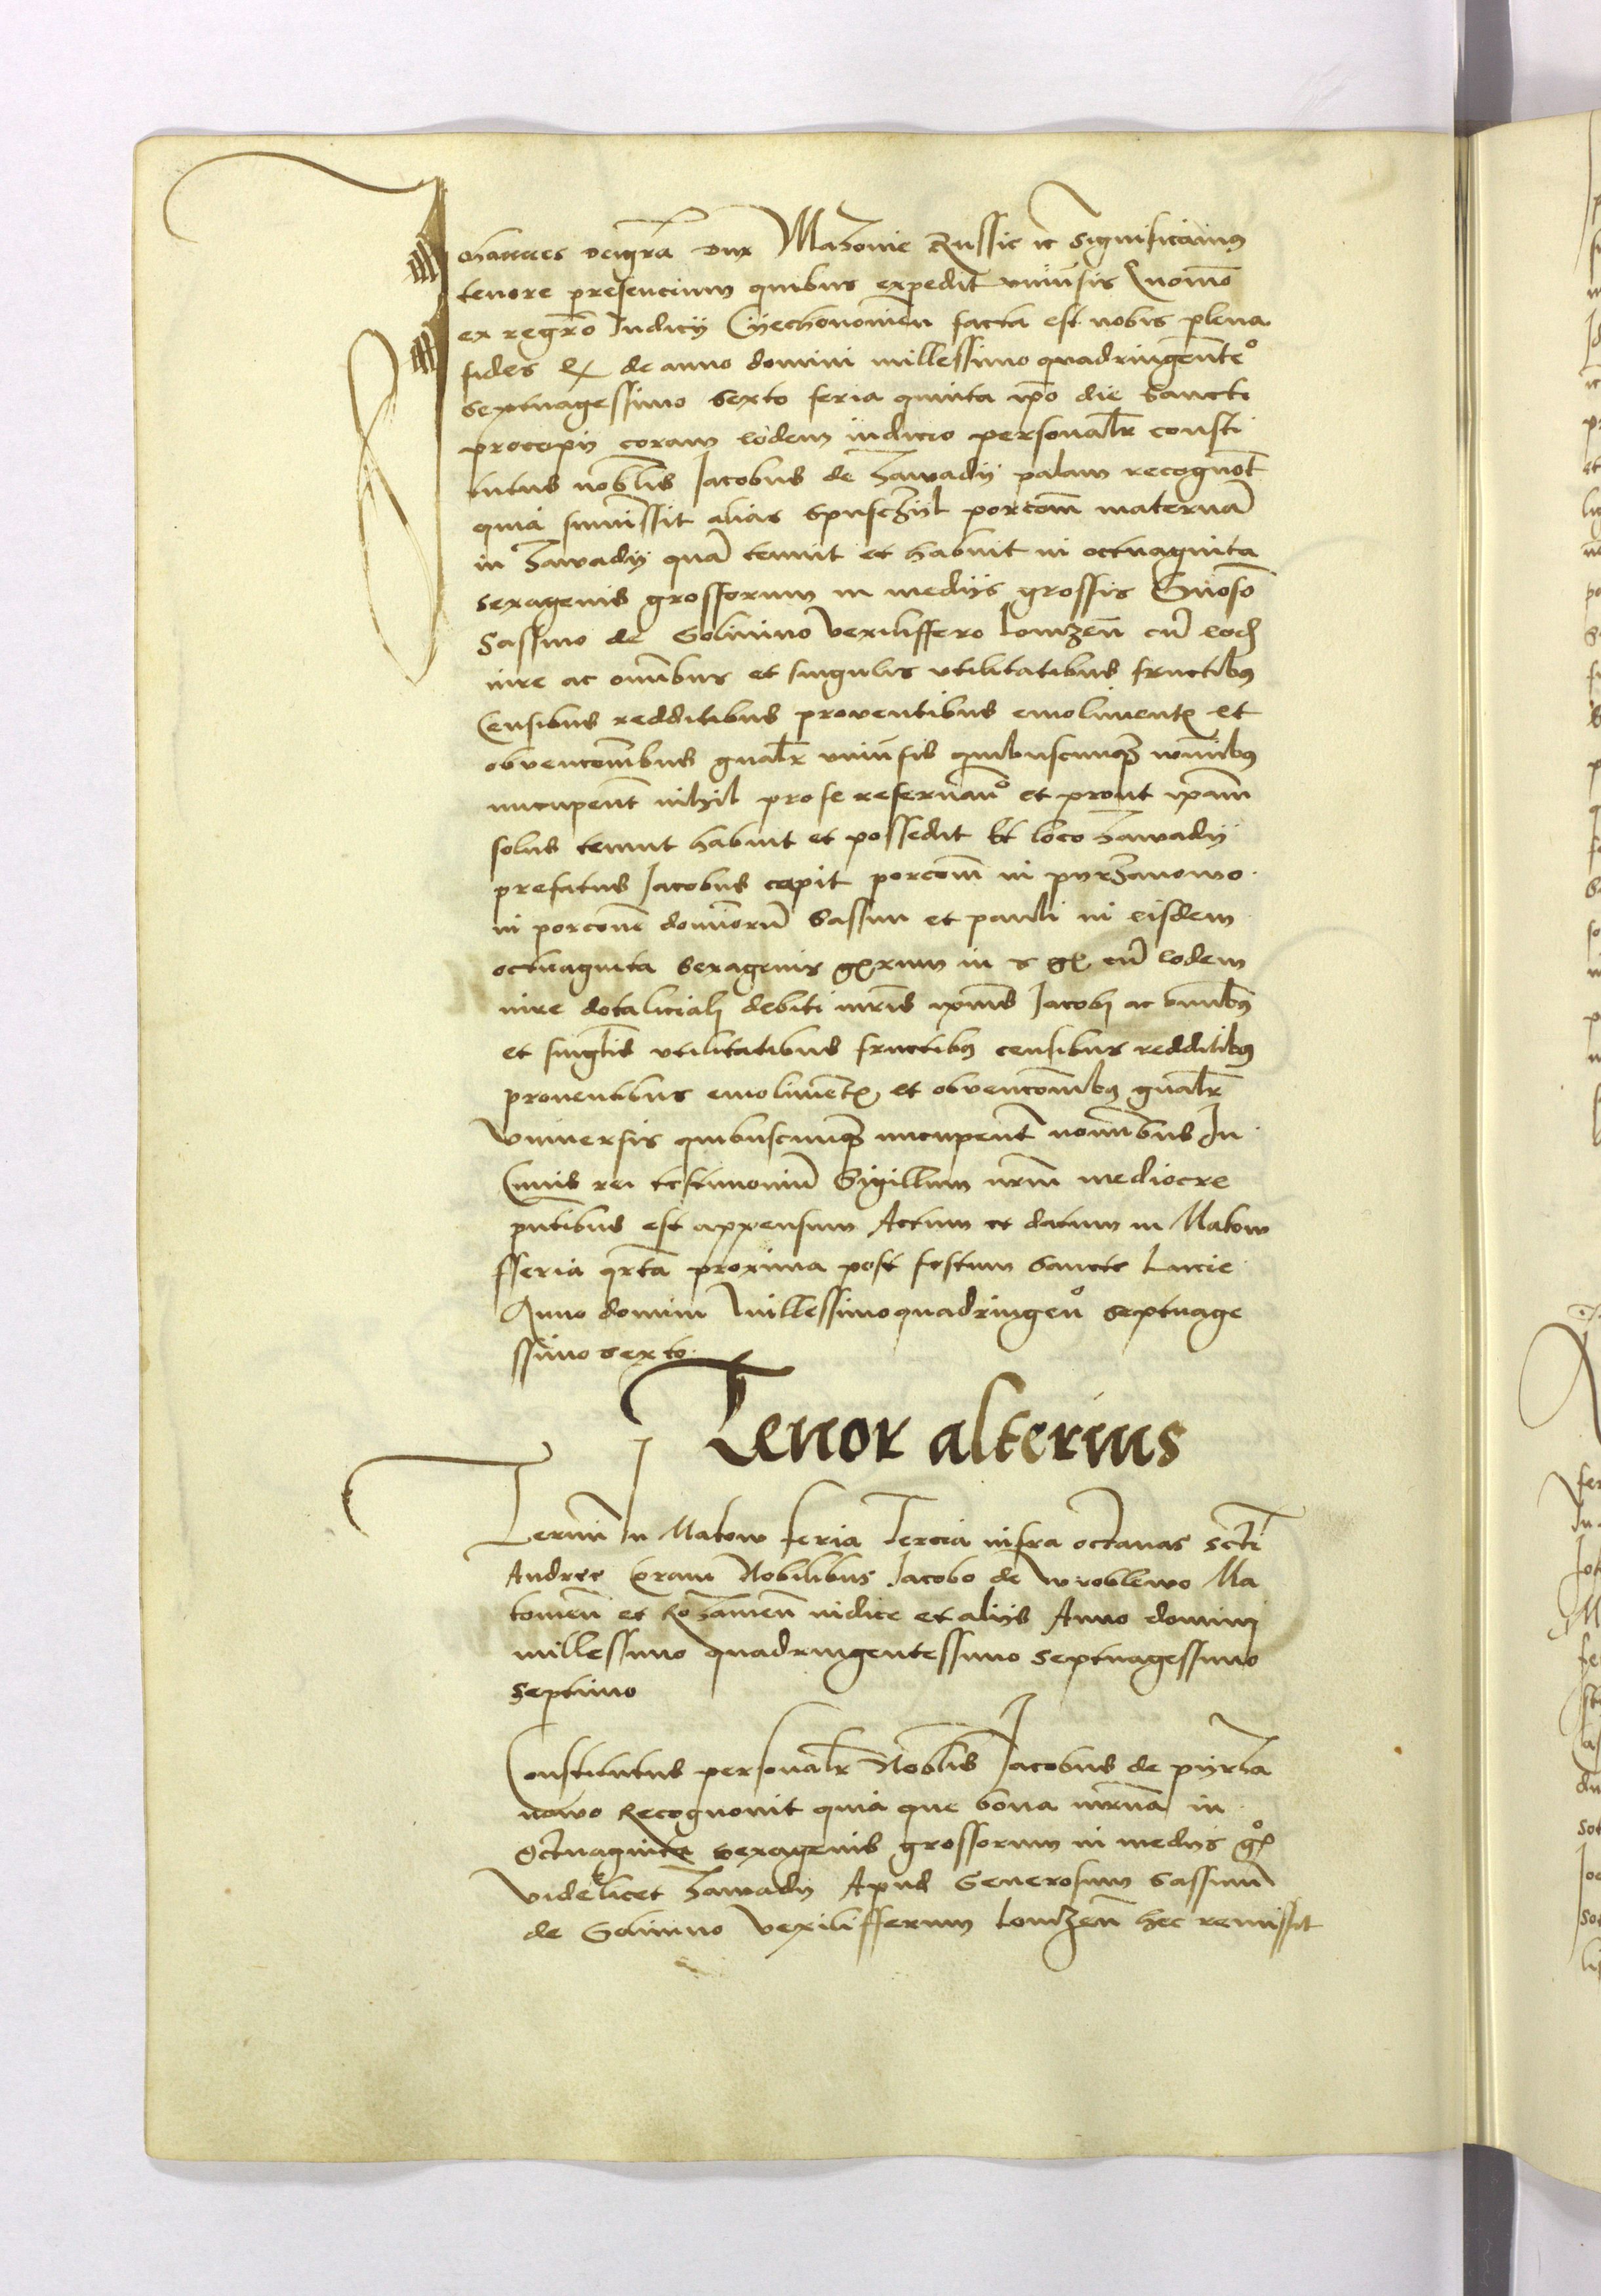 Johannes deigra dux Mazovie Russie ic Significamus
tenore presencium quibus expedit universis Quomo
ex regro Iudicij Cyechonovien facta est nobis plena
fides Q de anno domini millessimo quadringente°
septuagessimo sexto feria quinta ipo die sancti
procopij coram eodem iudicio personalr consti
tutus noblis Jacobus de Zawady palam recognot
quia sumissit alias spusczyl porcom maternā
in Zawady quā tenuit et habuit in octuaginta
sexagenis grossorum in medijs grossis Gnoso
Sassino de Golimino vexiliffero Lomzen cū eod
iure ac omibus et singulis utilitatibus fructibus
Censibus redditibus proventibus emolimentis et
obvencombus gnalr universis quibuscumq nominibus
nucupent nihil prose reservan° et prout ipam
solus tenuit habuit et possedit Et loco Zawady
prefatus Jacobus cepit porcom in pyrzanowo
in porcone dominorū Sassini et pauli in eisdem
octuaginta sexagenis grorum in s gr cū eodem
iure dotaliciali debiti mris ipius Jacobi ac omibus
et singlis utilitatibus fructibus censibus redditibus
proventibus emolimentis et obvencombus gnalr
universis quibuscumq nucupent nominibus In
Cuius rei testimoniū Sigillum nrm mediocre
pntibus est appensum Actum et datum in Makow
fferia qrta proxima post festum Sancte Lucie
Anno domini Millessimo quadringen° septuage
ssimo sexto
Tenor alterius
Termi In Makow feria Tercia infra octavas scti
Andree Coram Nobilibus Jacobo de wroblewo Ma
kovien et Rozanien iudice et alijs Anno domini
millessimo quadringentessimo septuagessimo
septimo
Constitutus personalr Noblis Jacobus de pyrza
nowo Recognovit quia que bona mrna in
octuaginta sexagenis grossorum in medijs gr°
videlicet Zawady Apud Generosum Sassinū
de Golimino vexilifferum Lomzen hec remissit